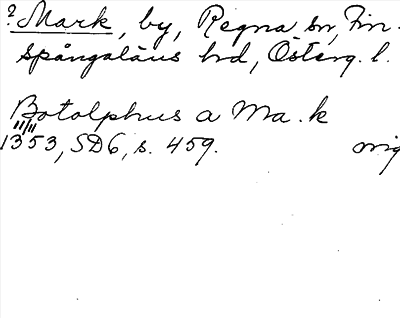 ? Mark, by, Regna sn, Fin-
spångaläns hd, Österg. l.
Botolphus a Ma.k
11/11
1353, SD6, s. 459. orig